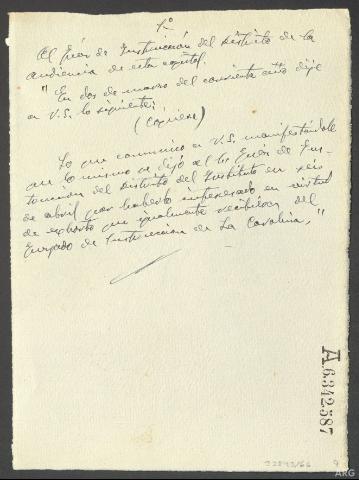 1º
Al Juez de Instrucción del distrito de la
audiencia de esta capital.
"En dos de marzo del corriente año dije
a V.S. lo siguiente:
(Cópiese)
Lo que comunico a V.S. manifestándole
que lo mismo se dijo al Sr Juez de Ins-
trucción del distrito del Instituto en seis
de abril por haberlo interesado en virtud
de exhorto que igualmente recibiera del
Juzgado de Instrucción de La Carolina."
A.6.342.587
9
ARG